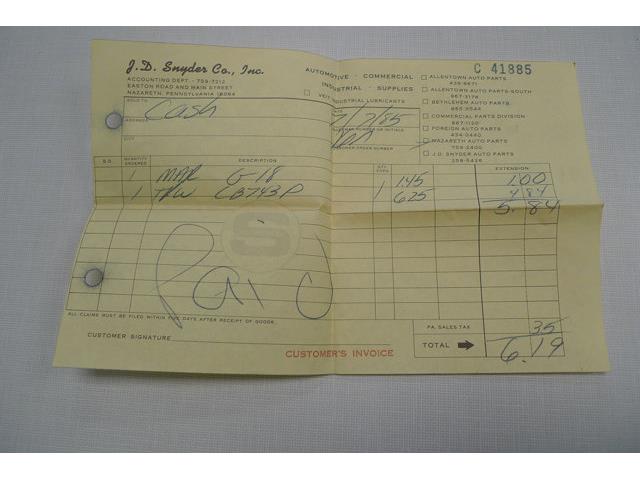 J.D. Snyder Co., Inc.
ACCOUNTING DEPT. - 759-7212
EASTON ROAD AND MAIN STREET
NAZARETH, PENNSYLVANIA 18064
AUTOMOTIVE · COMMERCIAL
INDUSTRIAL · SUPPLIES
INDUSTRIAL LUBRICANTS
C 41885
ALLENTOWN AUTO PARTS
ALLENTOWN AUTO PARTS-SOUTH
BETHLEHEM AUTO PARTS
COMMERCIAL PARTS DIVISION
FOREIGN AUTO PARTS
NAZARETH AUTO PARTS
J.D. SNYDER AUTO PARTS
SOLD TO Cash
ADDRESS
CITY
DATE
7/2/85
CUSTOMER ORDER NUMBER
S.O. QUANTITY ORDERED DESCRIPTION EXTENSION
1 MAR G-18 1.45 1.00
1 TRW CB743P 1 6.25 4.84
5.84
S
Paid
ALL CLAIMS MUST BE FILED WITHIN FIVE DAYS AFTER RECEIPT OF GOODS.
PA. SALES TAX 35
CUSTOMER SIGNATURE
CUSTOMER'S INVOICE
TOTAL 6.19